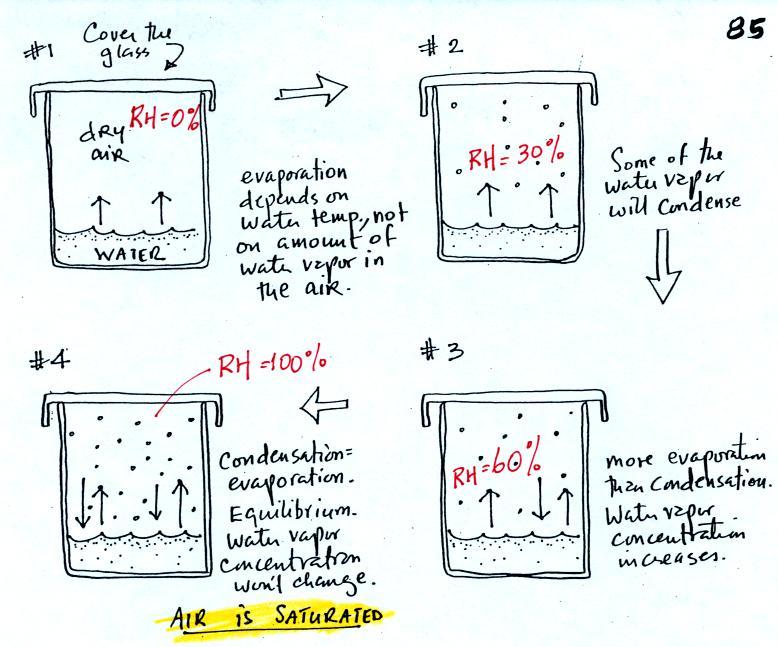 85
#1
Cover the
glass
RH=0%
dry
air
WATER
evaporation
depends on
water temp., not
on amount of
water vapor in
the air.
#2
RH=30%
Some of the
water vapor
will condense
#3
RH=60%
more evaporation
than condensation.
Water vapor
concentration
increases.
#4
RH=100%
Condensation=
evaporation.
Equilibrium.
Water vapor
concentration
won't change.
AIR IS SATURATED